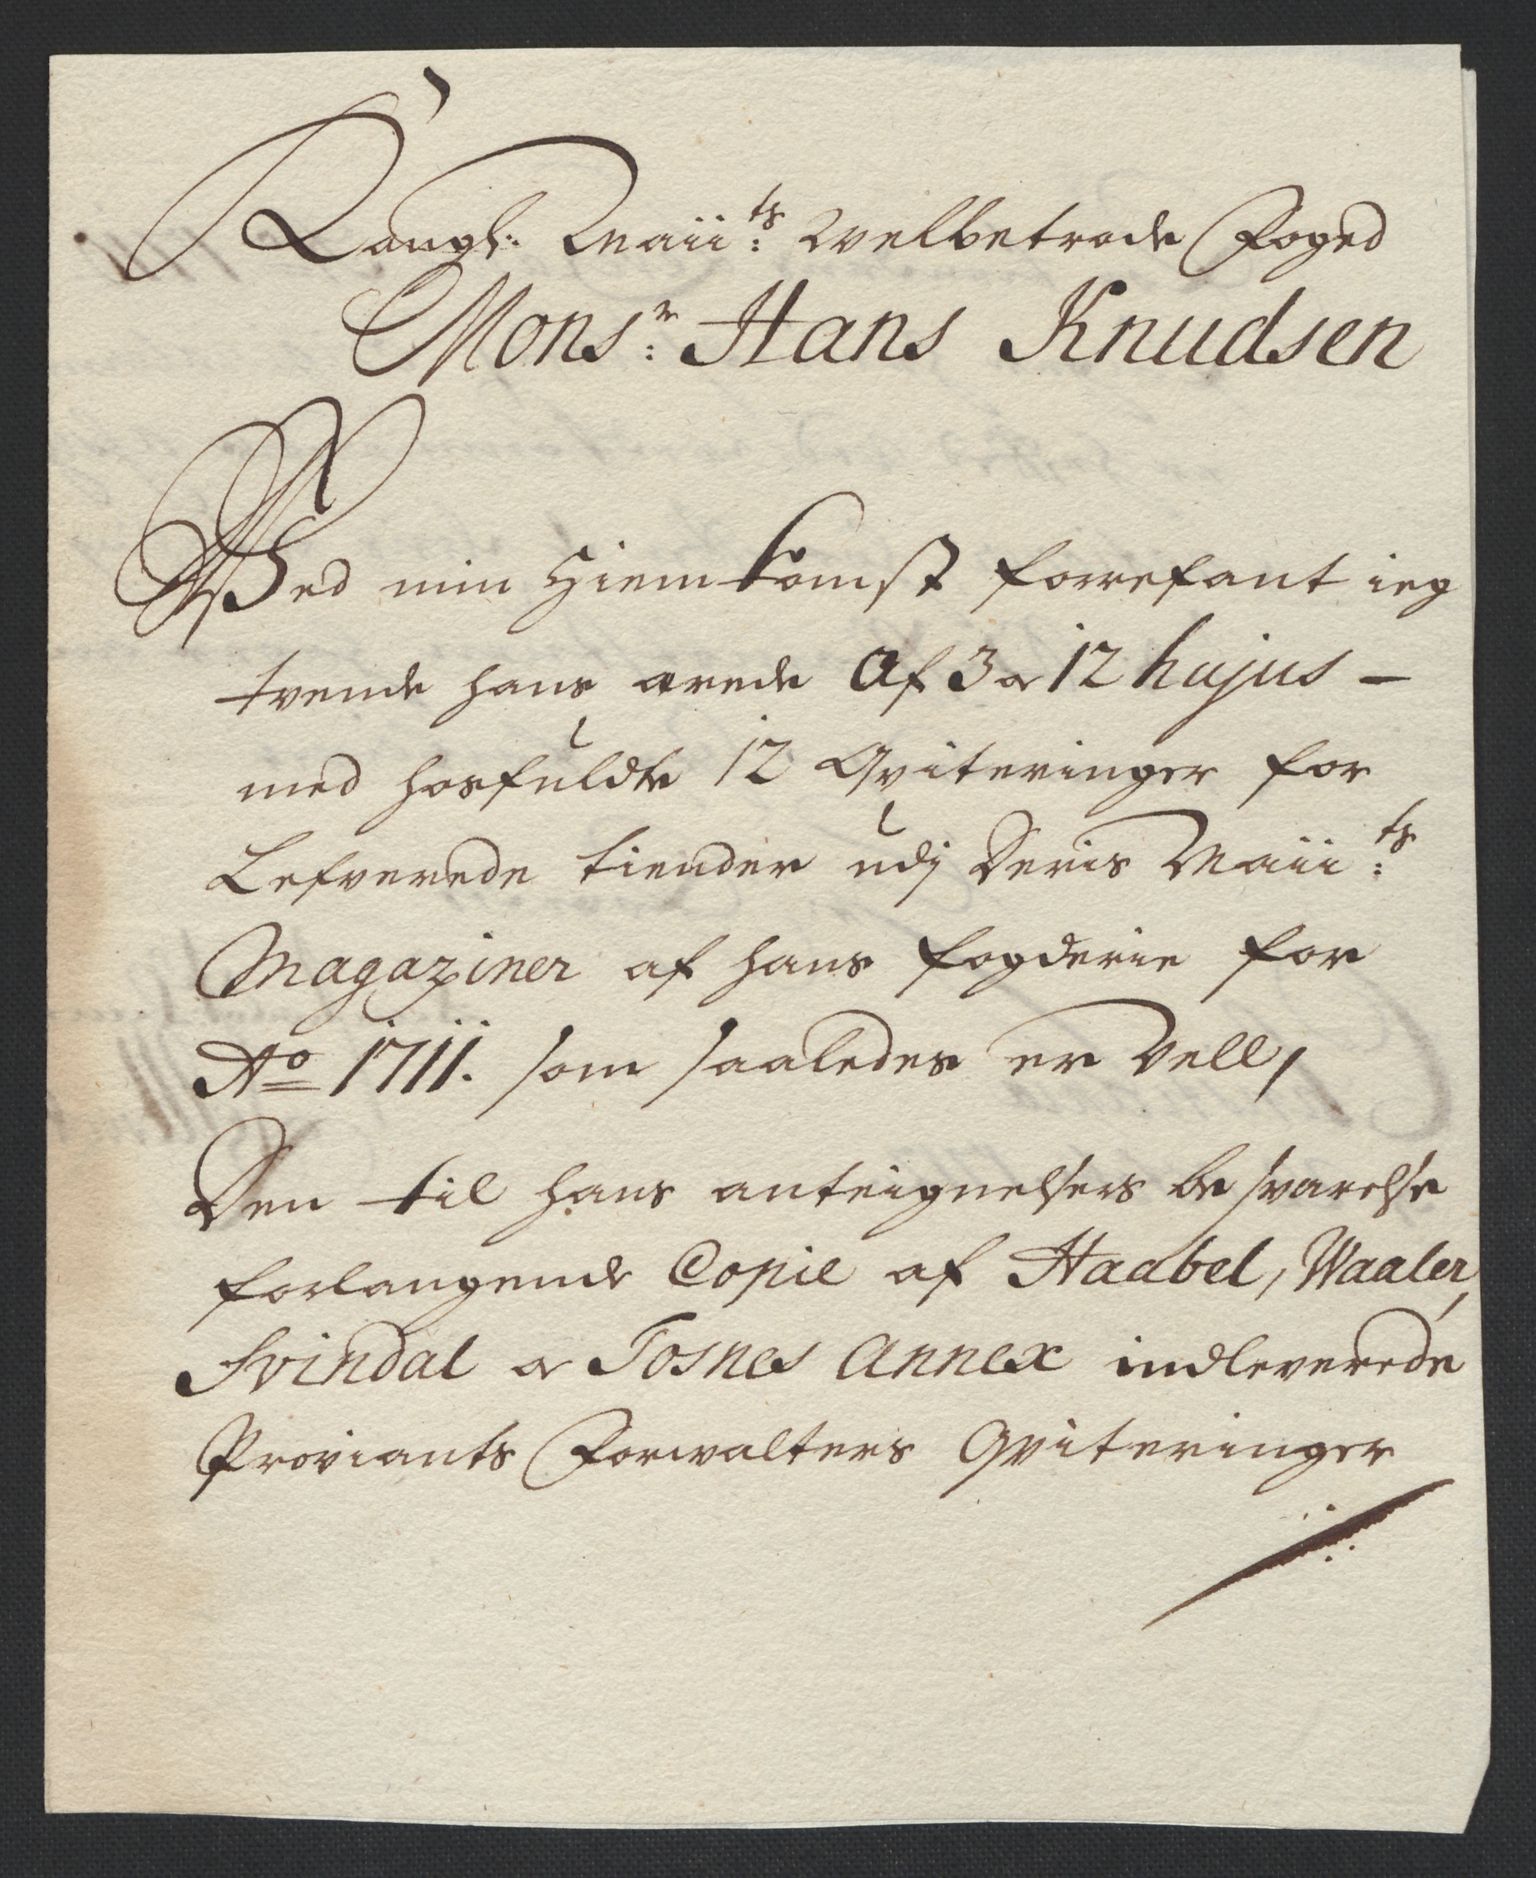 Kongl: Maiits: Welbetrode Foged
Monsr: Hans Knudsen
Wed min Hiemkomst forrefant ieg
tvende hans arede Af 3 & 12 hujus –
med hosfuldte 12 Qviteringer for
Lefverede tiender udj Deris Maiits:
Magaziner af hans fogderie for
Ao 1711. som saaledes er Vell,
Den til hans anteignelsers be svarelse
forlangende Copie af Haabel, Waaler,
Svindal & Tosnes Annex indleverede
Proviants Forwalters Qviteringer